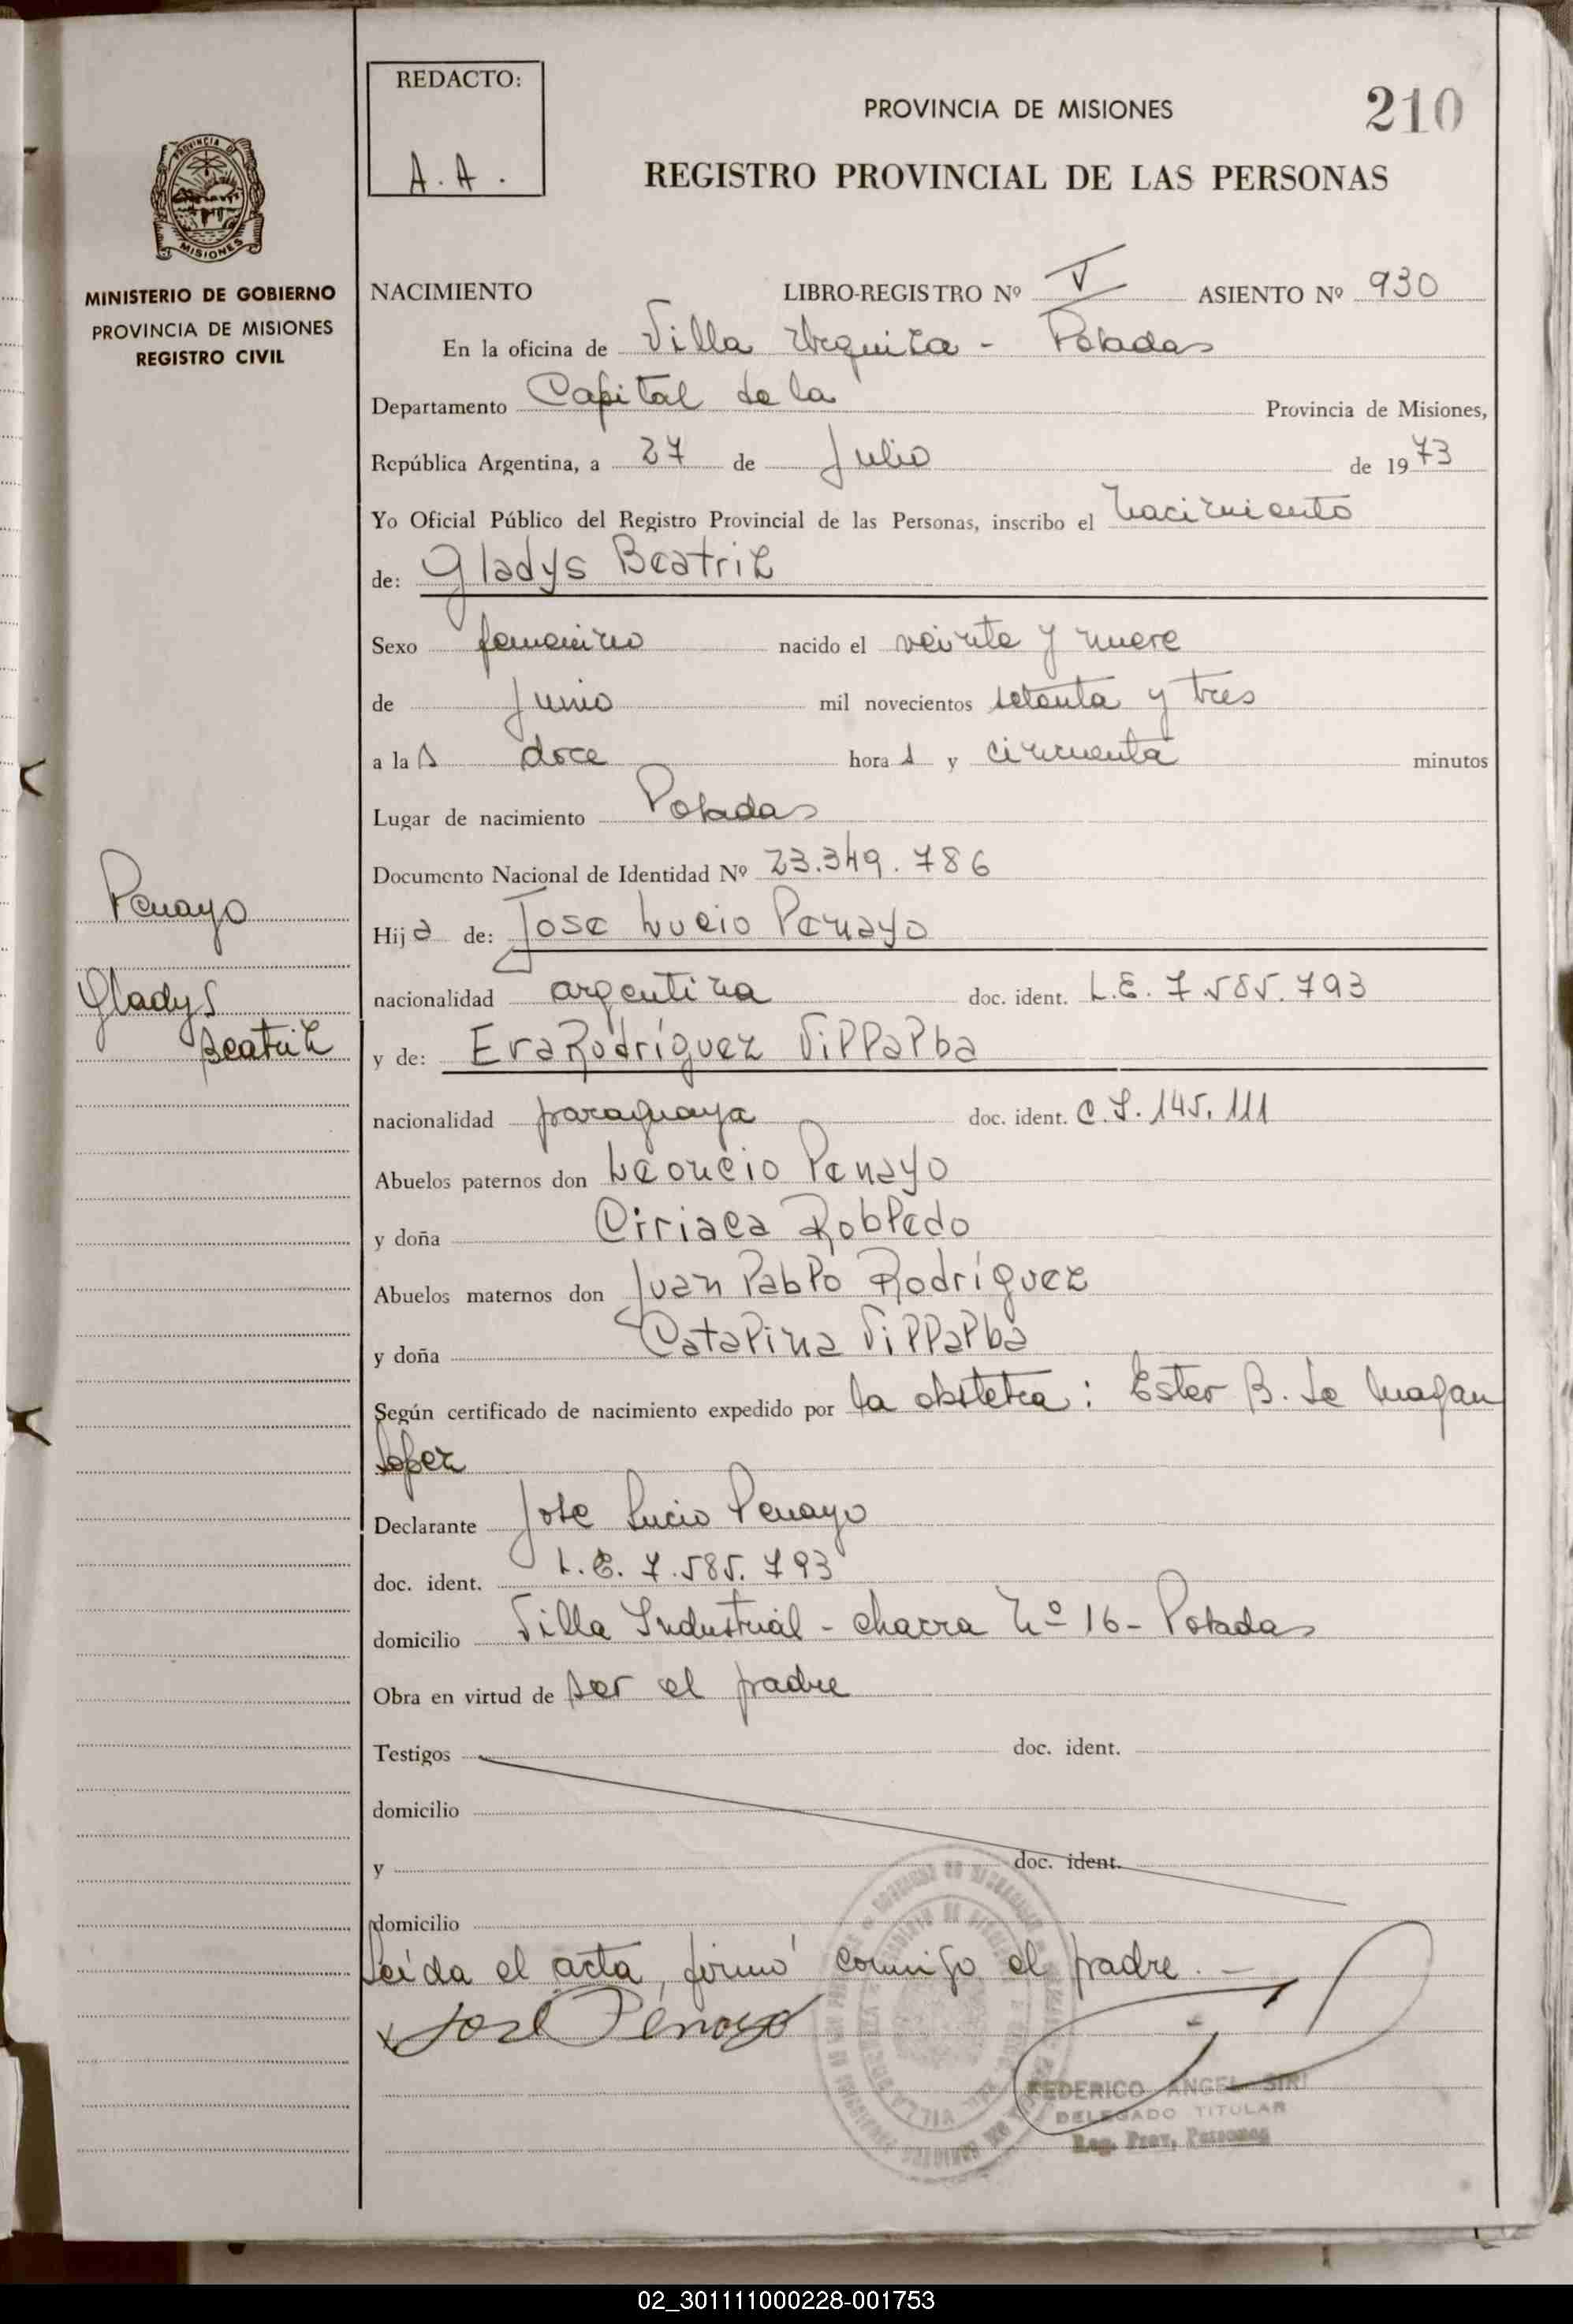 REDACTO:
A. A.
PROVINCIA DE MISIONES
210
REGISTRO PROVINCIAL DE LAS PERSONAS
PROVINCIA DE
MISIONES
MINISTERIO DE GOBIERNO
PROVINCIA DE MISIONES
REGISTRO CIVIL
NACIMIENTO LIBRO-REGISTRO Nº V ASIENTO Nº 930
En la oficina de Villa Urquiza - Posadas
Departamento Capital de la Provincia de Misiones,
República Argentina, a 27 de Julio de 1973
Yo Oficial Público del Registro Provincial de las Personas, inscribo el nacimiento
de: Gladys Beatriz
Sexo femenino nacido el veinte y nueve
de Junio mil novecientos setenta y tres
a las doce horas y cincuenta minutos
Lugar de nacimiento Posadas
Documento Nacional de Identidad Nº 23.349.786
Penayo
Hija de: Jose Lucio Penayo
Gladys
nacionalidad argentina doc. ident. L.E. 7.585.793
Beatriz
y de: Eva Rodríguez Villalba
nacionalidad paraguaya doc. ident. C.I. 145.111
Abuelos paternos don Leoncio Penayo
y doña Ciriaca Robledo
Abuelos maternos don Juan Pablo Rodríguez
y doña Catalina Villalba
Según certificado de nacimiento expedido por la obstetra: Ester B. de Magan
Lopez
Declarante Jose Lucio Penayo
doc. ident. L.E. 7.585.793
domicilio Villa Industrial - chacra Nº 16 - Posadas
Obra en virtud de ser el padre
Testigos doc. ident.
domicilio
y doc. ident.
domicilio
Leída el acta, firmó conmigo el padre. -
José Penayo
FEDERICO ANGEL SIRI
DELEGADO TITULAR
Reg. Prov. Personas
02_301111000228-001753